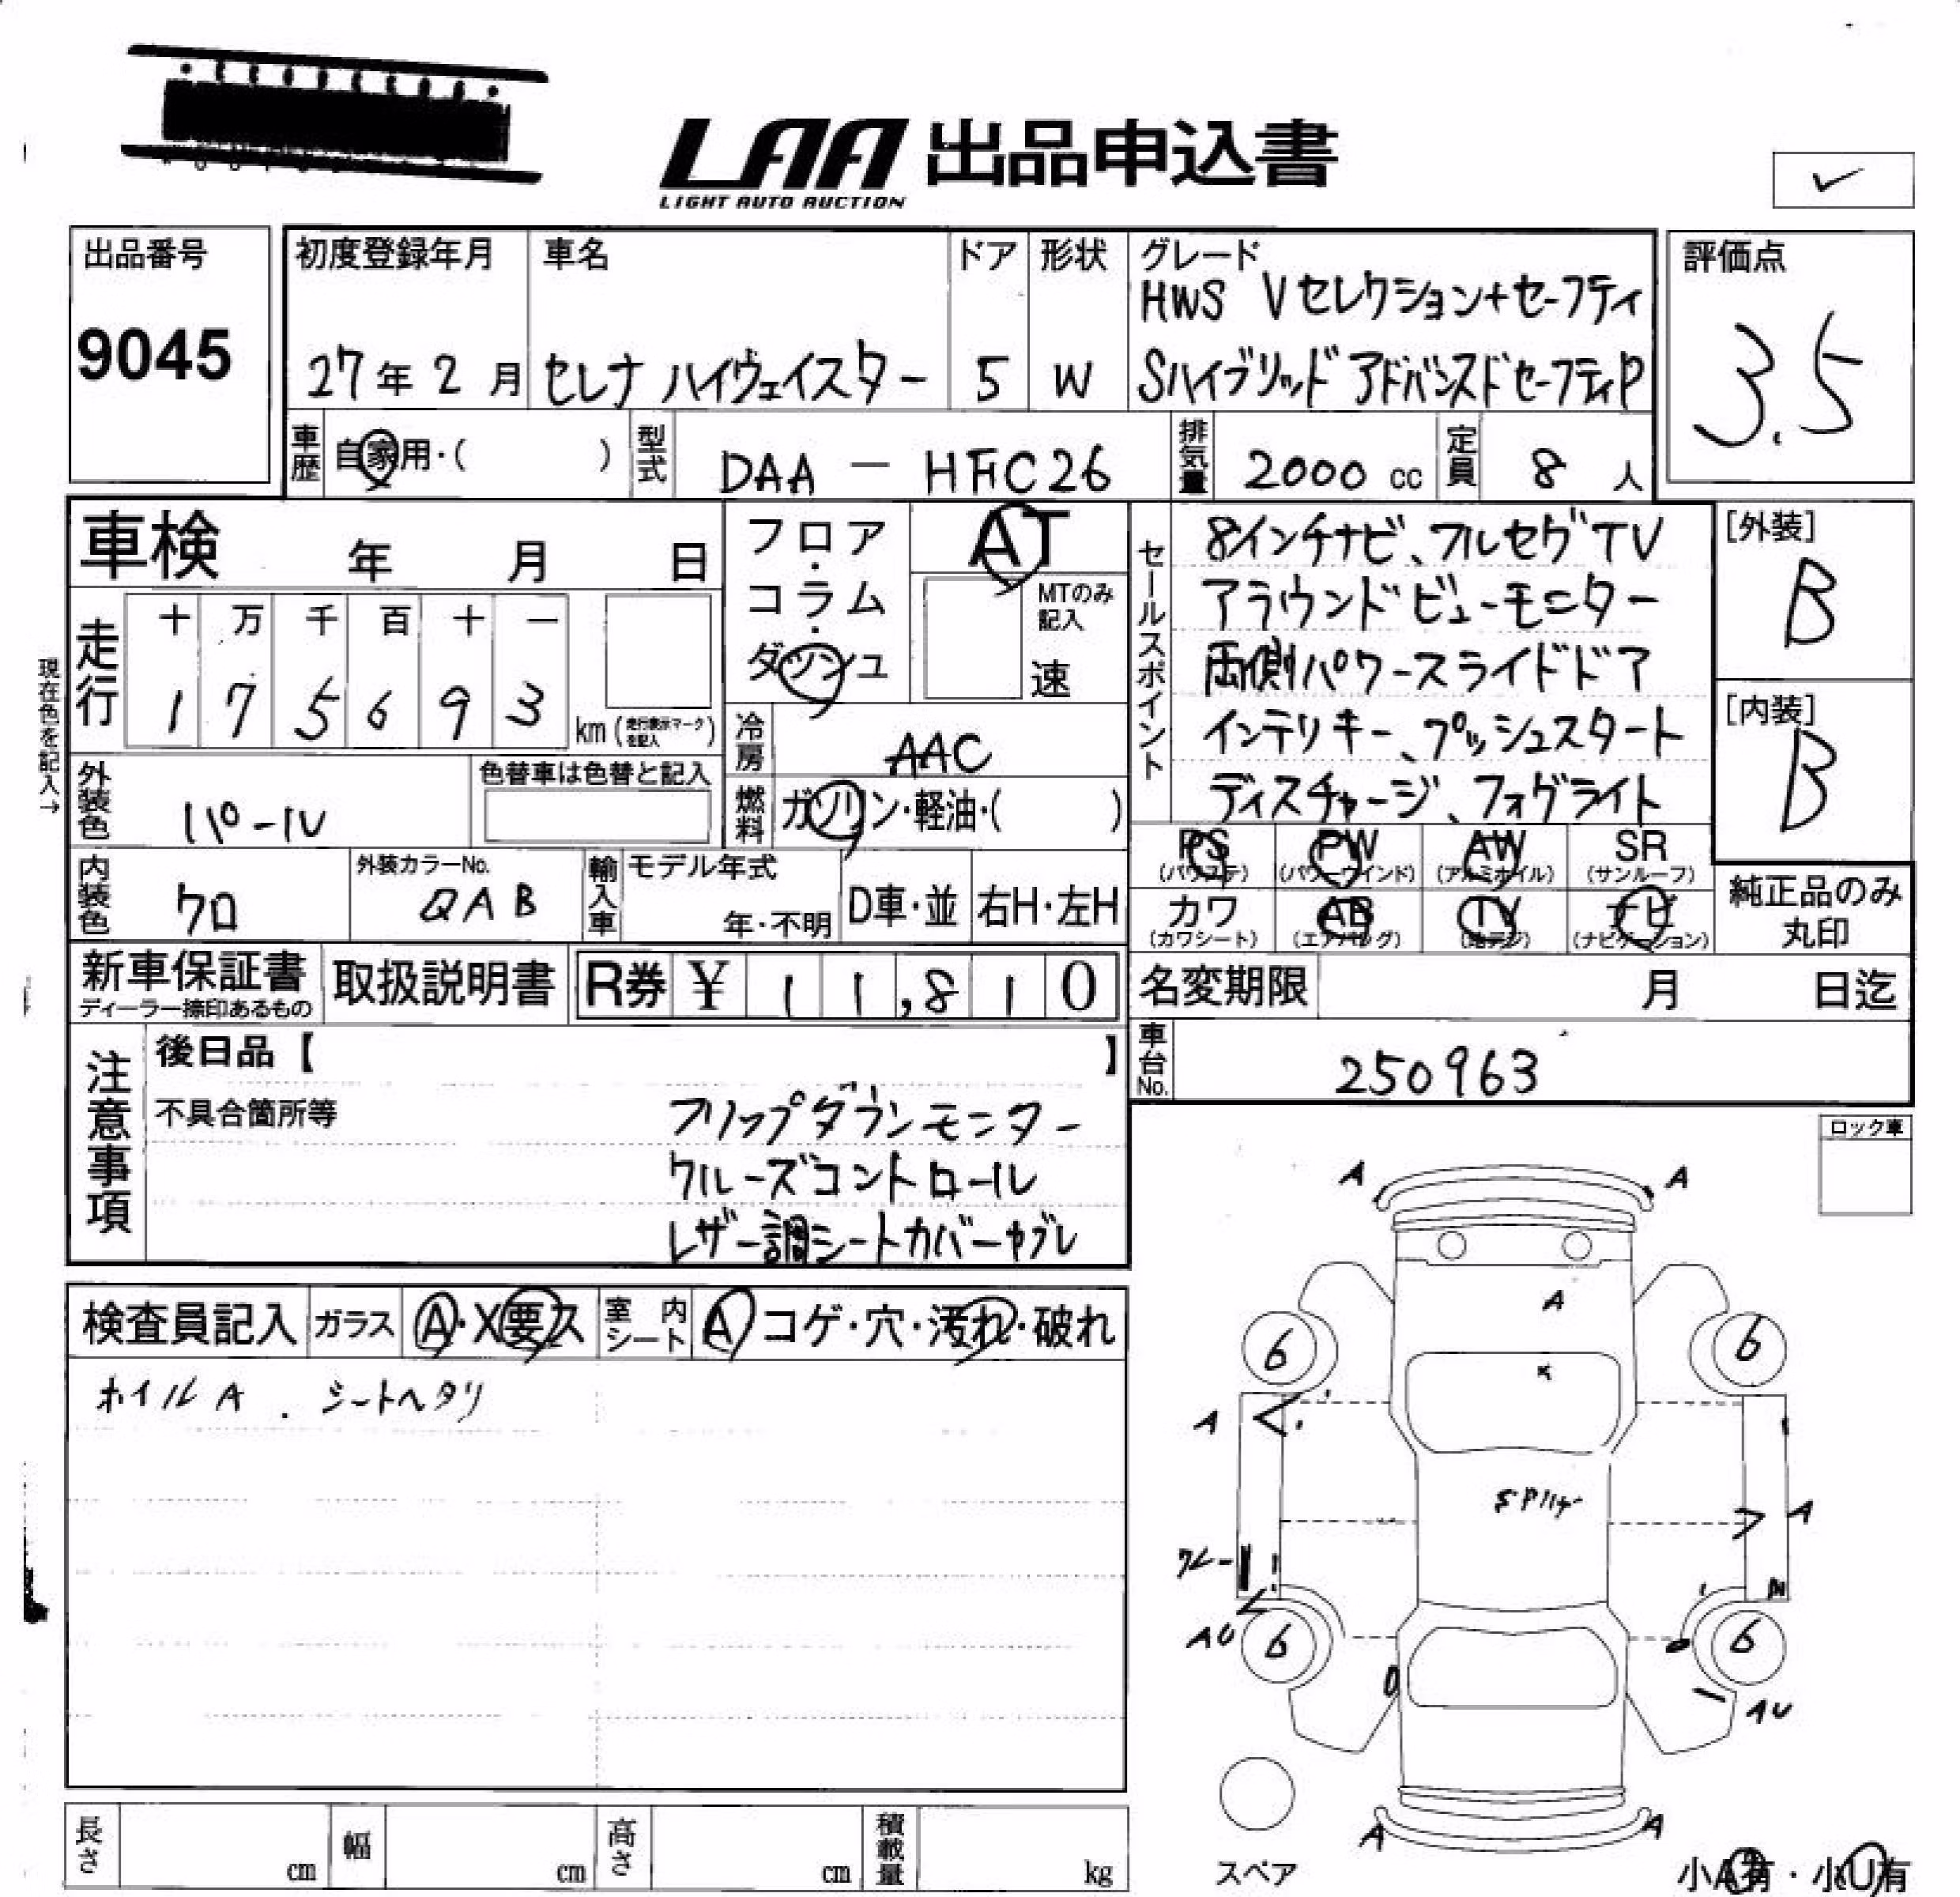 LAA 出品申込書
LIGHT AUTO AUCTION
出品番号
9045
初度登録年月
27年2月
車名
セレナ ハイウェイスター
ドア
5
形状
W
グレード
HWS Vセレクション+セーフティ
Sハイブリッド アドバンスドセーフティP
評価点
3.5
車歴 自家用・( )
型式 DAA - HFC26
排気量 2000 cc
定員 8 人
車検 年 月 日
フロア・コラム・ダッシュ
AT
MTのみ記入
速
現在色を記入→
走行
十 万 千 百 十 一
1 7 5 6 9 3
km (走行表示マークを記入)
冷房 AAC
外装色 パール
色替車は色替と記入
燃料 ガソリン・軽油・( )
内装色 クロ
外装カラーNo.
QAB
輸入車
モデル年式
年・不明
D車・並
右H・左H
セールスポイント
8インチナビ、フルセグTV
アラウンドビューモニター
両側パワースライドドア
インテリキー、プッシュスタート
ディスチャージ、フォグライト
[外装]
B
[内装]
B
PS (パワステ)
PW (パワーウインド)
AW (アルミホイル)
SR (サンルーフ)
カワ (カワシート)
AB (エアバッグ)
TV (地デジ)
ナビ (ナビゲーション)
純正品のみ
丸印
新車保証書
ディーラー捺印あるもの
取扱説明書
R券 ¥ 11,810
名変期限 月 日迄
車台No. 250963
注意事項
後日品【 】
不具合箇所等
フリップダウンモニター
クルーズコントロール
レザー調シートカバーヤブレ
ロック車
検査員記入
ガラス A・X要ス
室内シート A コゲ・穴・汚れ・破れ
ホイルA . シートヘタリ
A A
A
6 6
x
A
A
AU
6 6
AU
A A
スペア
小A有・小U有
長さ cm
幅 cm
高さ cm
積載量 kg